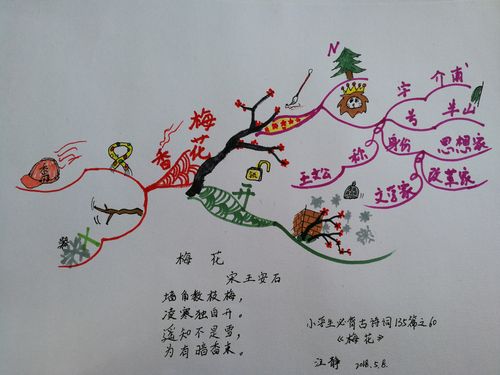 N
字 介甫
号 半山
身份 思想家
称 王文公
文学家 改革家
梅花
香
开
梅 花
宋 王安石
墙角数枝梅，
凌寒独自开。
遥知不是雪，
为有暗香来。
小学生必背古诗词135篇之60
《梅花》
汪静 2018.5.8.